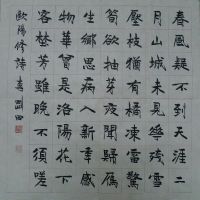 春風疑不到天涯二
月山城未見花殘雪
壓枝猶有橘凍雷驚
筍欲抽芽夜聞歸雁
生鄉思病入新年感
物華曾是洛陽花下
客野芳雖晚不須嗟
歐陽修詩